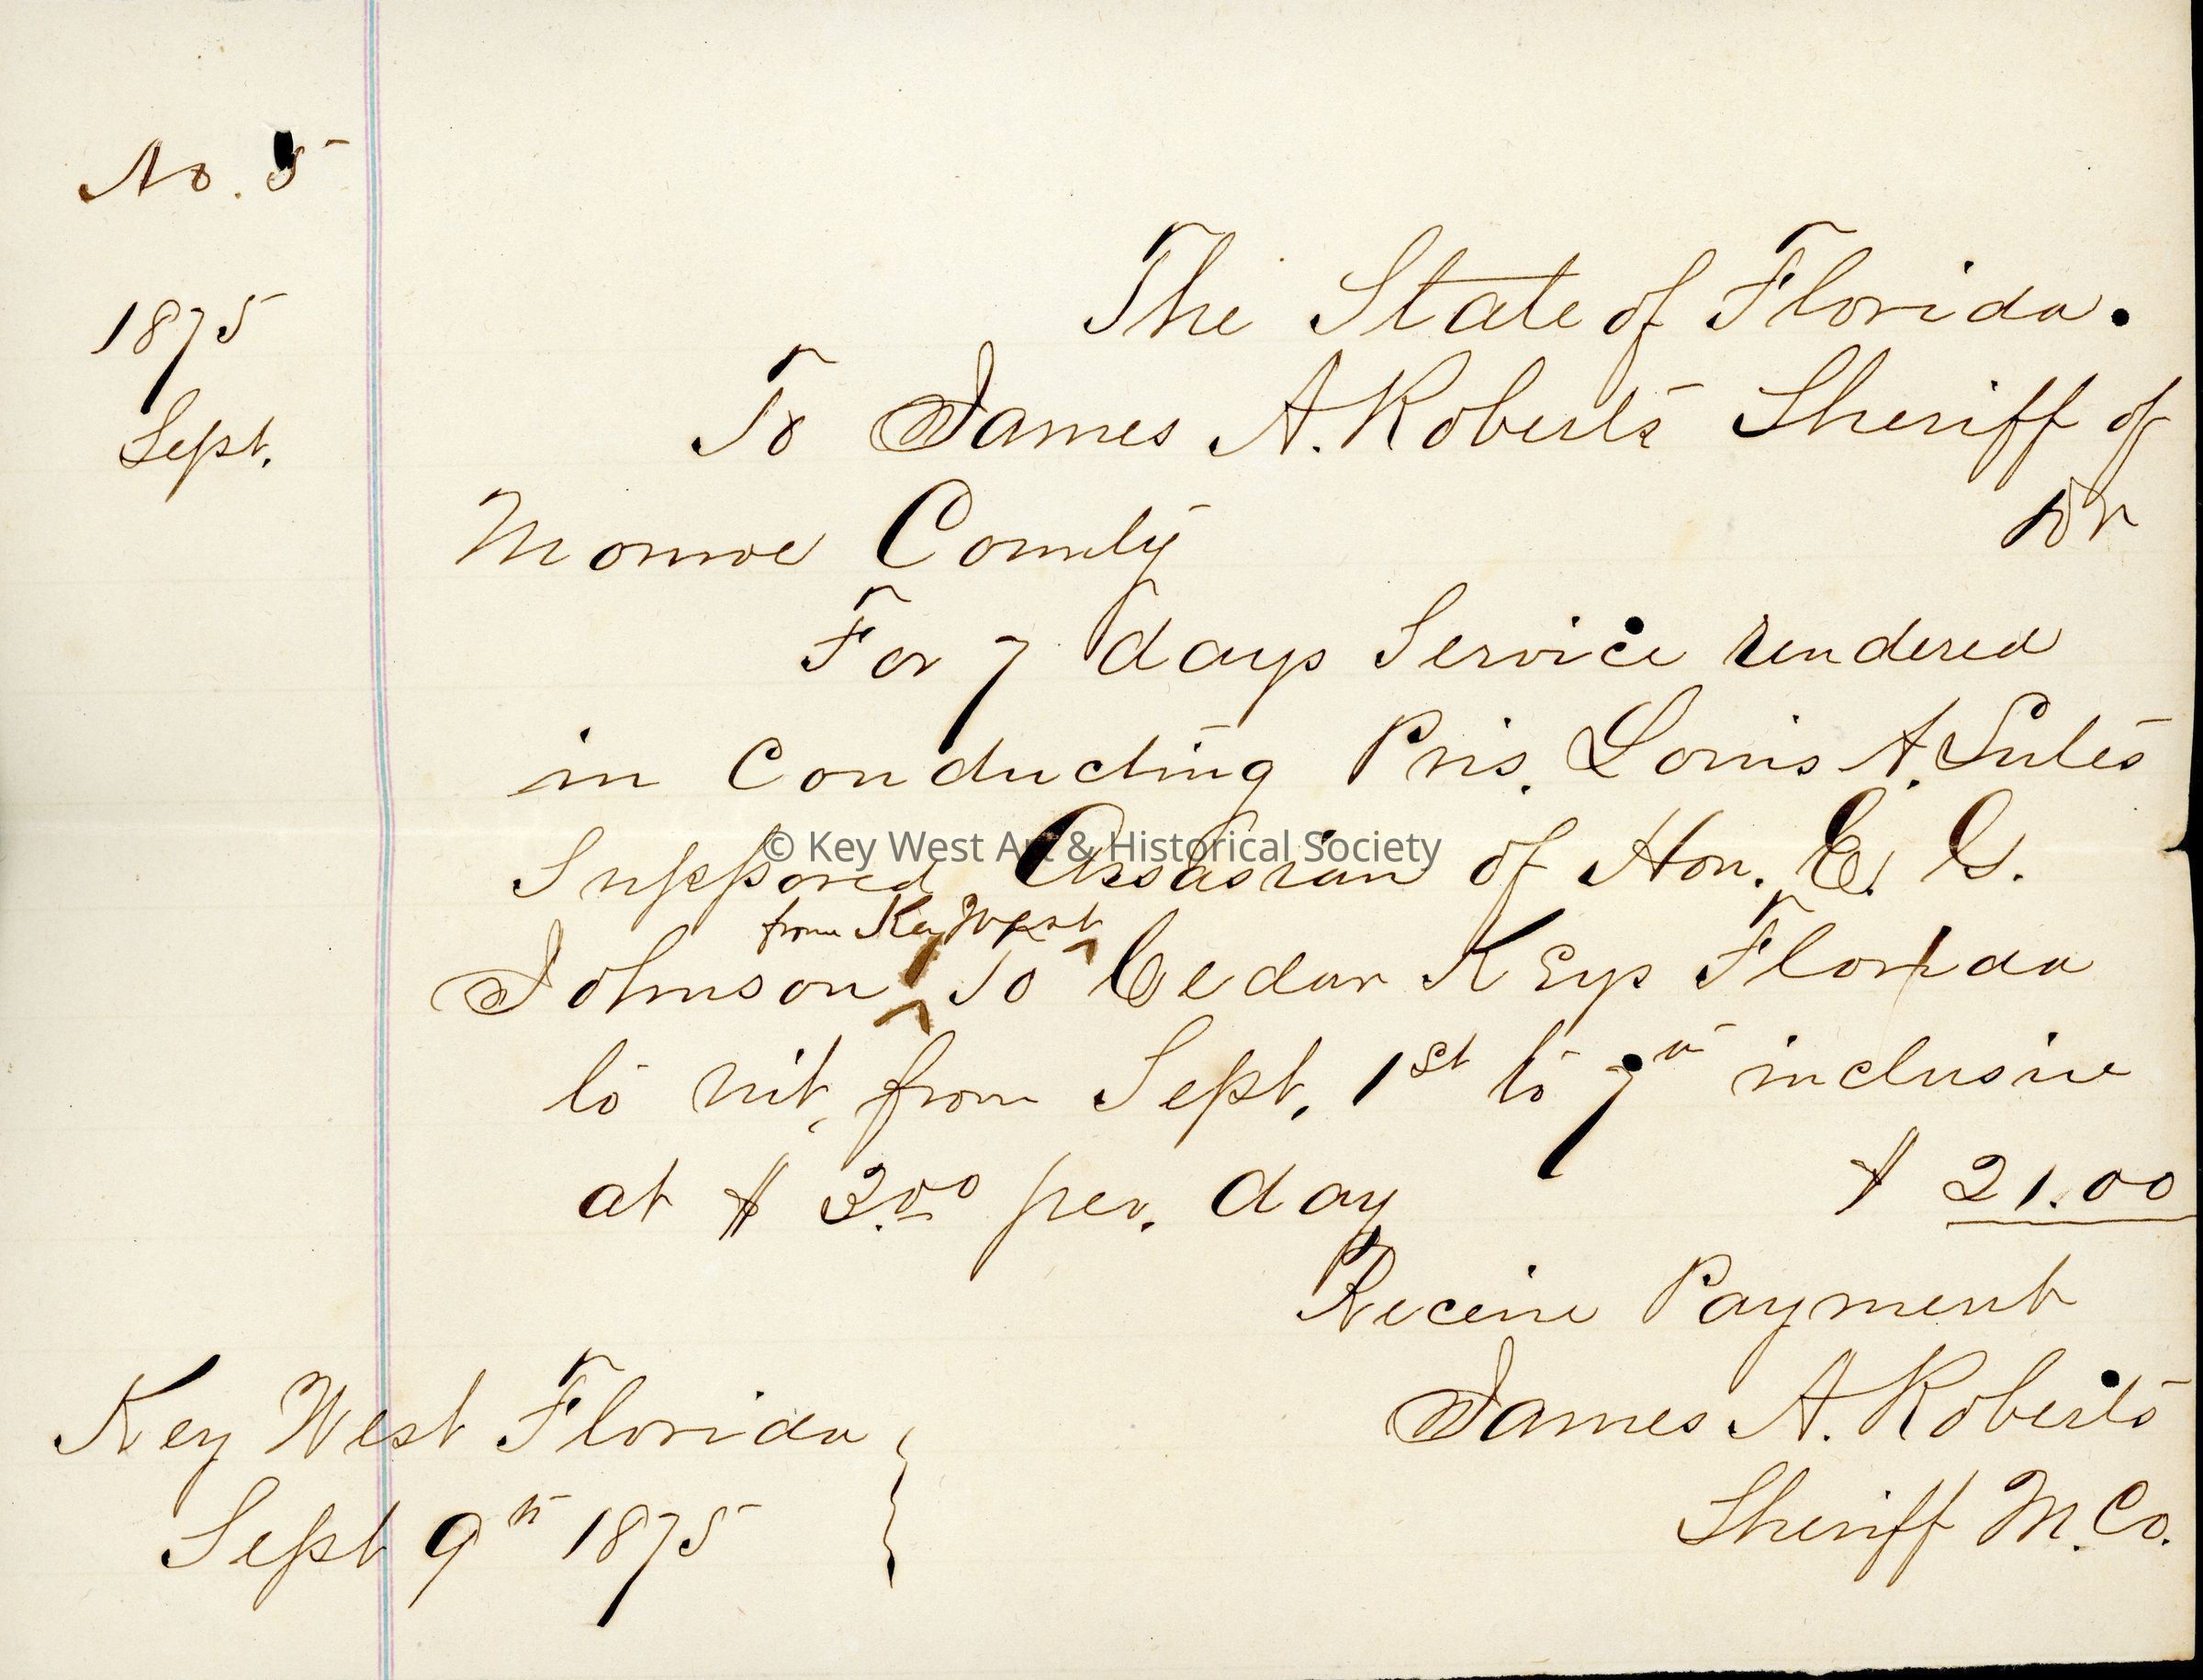 No. 5
1875
Sept.
The State of Florida.
To James A. Roberts Sheriff of
Monroe County Dr
For 7 days Service rendered
in Conducting Pris. Louis A.
Supposed Assasian of Hon. E. G.
© Key West Art & Historical Society
from Key West
Johnson To Cedar Keys Florida
to wit, from Sept. 1st to 7th inclusive
at $ 3.00 per. day $ 21.00
Receive Payment
James A. Roberts
Sheriff M. Co.
Key West Florida
Sept 9th 1875